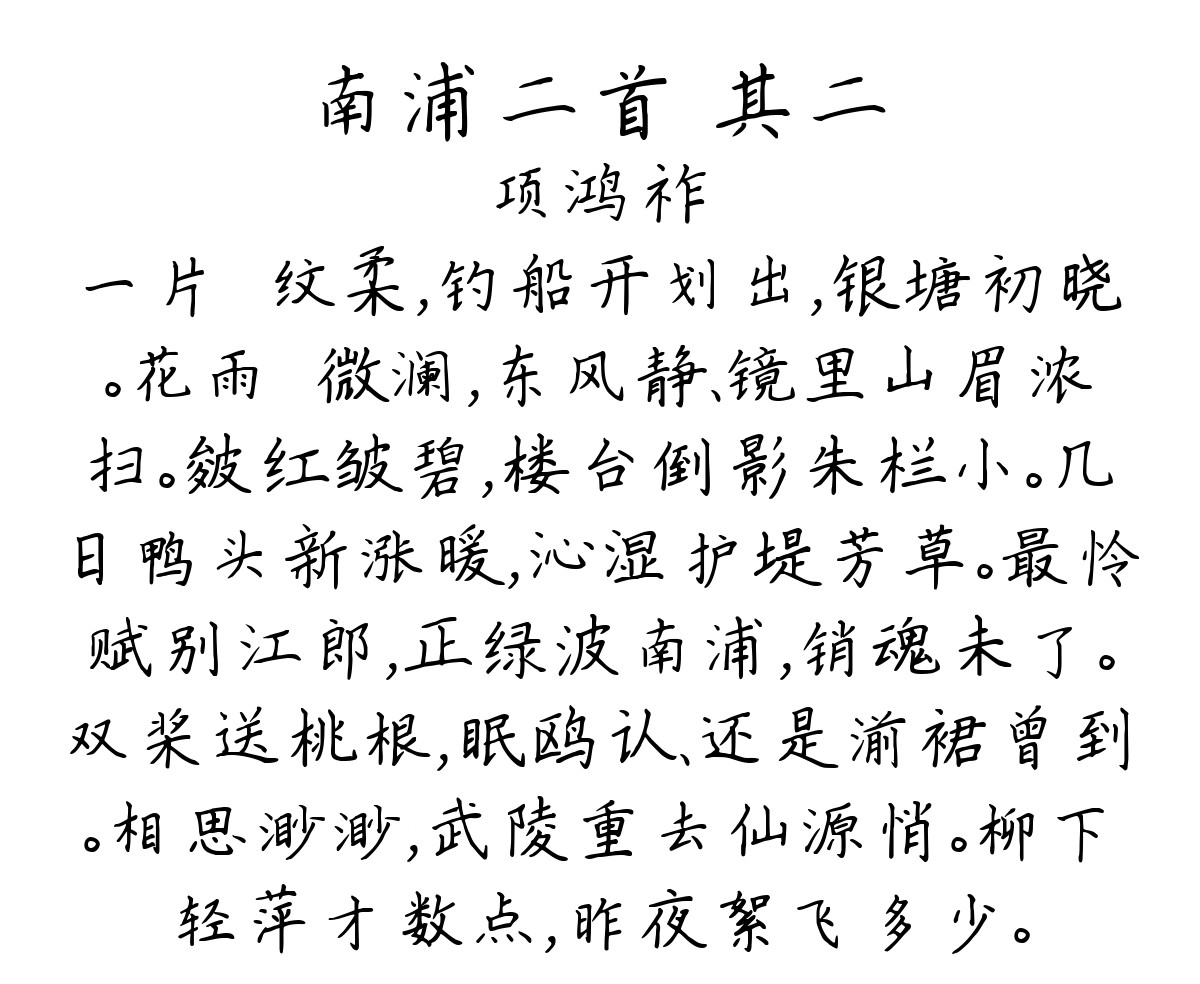 南浦二首 其二
项鸿祚
一片 纹柔,钓船开划出,银塘初晓
。花雨 微澜,东风静、镜里山眉浓
扫。皴红皱碧,楼台倒影朱栏小。几
日鸭头新涨暖,沁湿护堤芳草。最怜
赋别江郎,正绿波南浦,销魂未了。
双桨送桃根,眠鸥认、还是湔裙曾到
。相思渺渺,武陵重去仙源悄。柳下
轻萍才数点,昨夜絮飞多少。